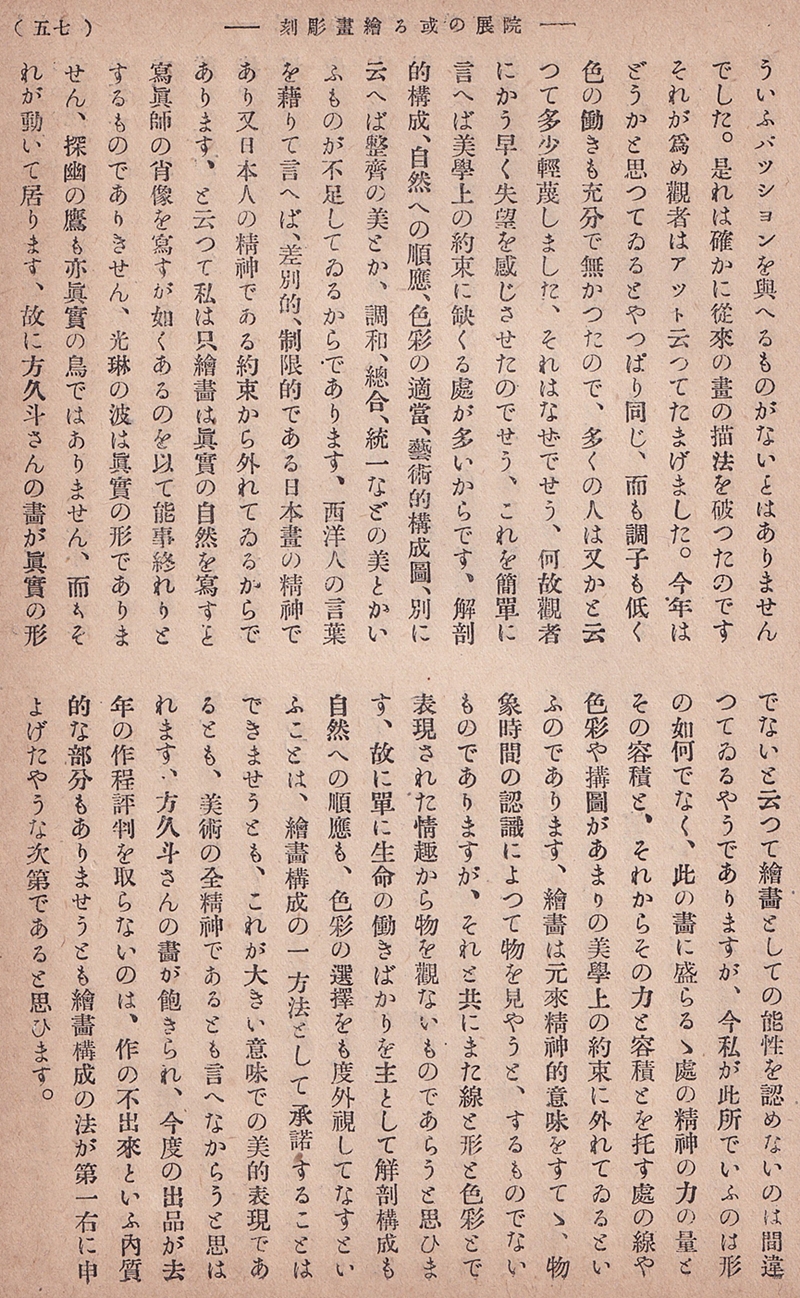 （五七）　── 刻彫畫繪る或の展院 ──
ういふパツシヨンを與へるものがないとはありません
でした。是れは確かに從來の畫の描法を破つたのです
それが爲め觀者はアツト云つてたまげました。今年は
どうかと思つてゐるとやつぱり同じ、而も調子も低く
色の働きも充分で無かつたので、多くの人は又かと云
つて多少輕蔑しました、それはなぜでせう、何故觀者
にかう早く失望を感じさせたのでせう、これを簡單に
言へば美學上の約束に缺くる處が多いからです、解剖
的構成、自然への順應、色彩の適當、藝術的構成圖、別に
云へば整齊の美とか、調和、總合、統一などの美とかい
ふものが不足してゐるからであります、西洋人の言葉
を藉りて言へば、差別的、制限的である日本畫の精神で
あり又日本人の精神である約束から外れてゐるからで
あります、と云つて私は只繪畫は眞實の自然を寫すと
寫眞師の肖像を寫すが如くあるのを以て能事終れりと
するものでありきせん、光琳の波は眞實の形でありま
せん、探幽の鷹も亦眞實の鳥ではありません、而もそ
れが動いて居ります、故に方久斗さんの畵が眞實の形
でないと云つて繪畫としての能性を認めないのは間違
つてゐるやうでありますが、今私が此所でいふのは形
の如何でなく、此の畵に盛らるゝ處の精神の力の量と
その容積と、それからその力と容積とを托す處の線や
色彩や搆圖があまりの美學上の約束に外れてゐるとい
ふのであります、繪畫は元來精神的意味をすてゝ、物
象時間の認識によつて物を見やうと、するものでない
ものでありますが、それと共にまた線と形と色彩とで
表現された情趣から物を觀ないものであらうと思ひま
す、故に單に生命の働きばかりを主として解剖構成も
自然への順應も、色彩の選擇をも度外視してなすとい
ふことは、繪畫構成の一方法として承諾することは
できませうとも、これが大きい意味での美的表現であ
るとも、美術の全精神であるとも言へなからうと思は
れます、方久斗さんの畵が飽きられ、今度の出品が去
年の作程評判を取らないのは、作の不出來といふ內質
的な部分もありませうとも繪畫構成の法が第一右に申
よげたやうな次第であると思ひます。